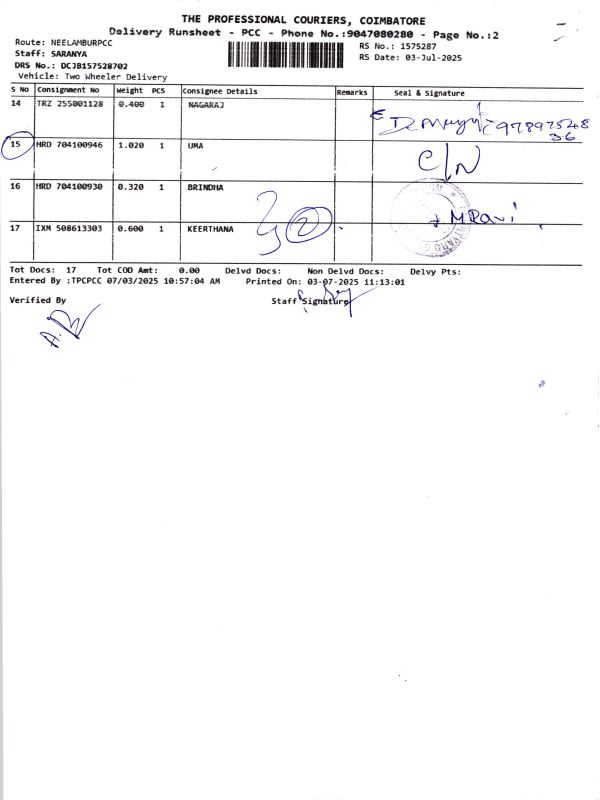 THE PROFESSIONAL COURIERS, COIMBATORE
Delivery Runsheet - PCC - Phone No.:9047080280 - Page No.:2
Route: NEELAMBURPCC
Staff: SARANYA
DRS No.: DCJB157528702
Vehicle: Two Wheeler Delivery
RS No.: 1575287
RS Date: 03-Jul-2025
S No Consignment No Weight PCS Consignee Details Remarks Seal & Signature
14 TRZ 255001128 0.400 1 NAGARAJ
15 HRD 704100946 1.020 1 UMA
C/N
16 HRD 704100930 0.320 1 BRINDHA
M Ravi
17 IXM 508613303 0.600 1 KEERTHANA
2
Tot Docs: 17 Tot COD Amt: 0.00 Delvd Docs: Non Delvd Docs: Delvy Pts:
Entered By :TPCPCC 07/03/2025 10:57:04 AM Printed On: 03-07-2025 11:13:01
Verified By Staff Signature